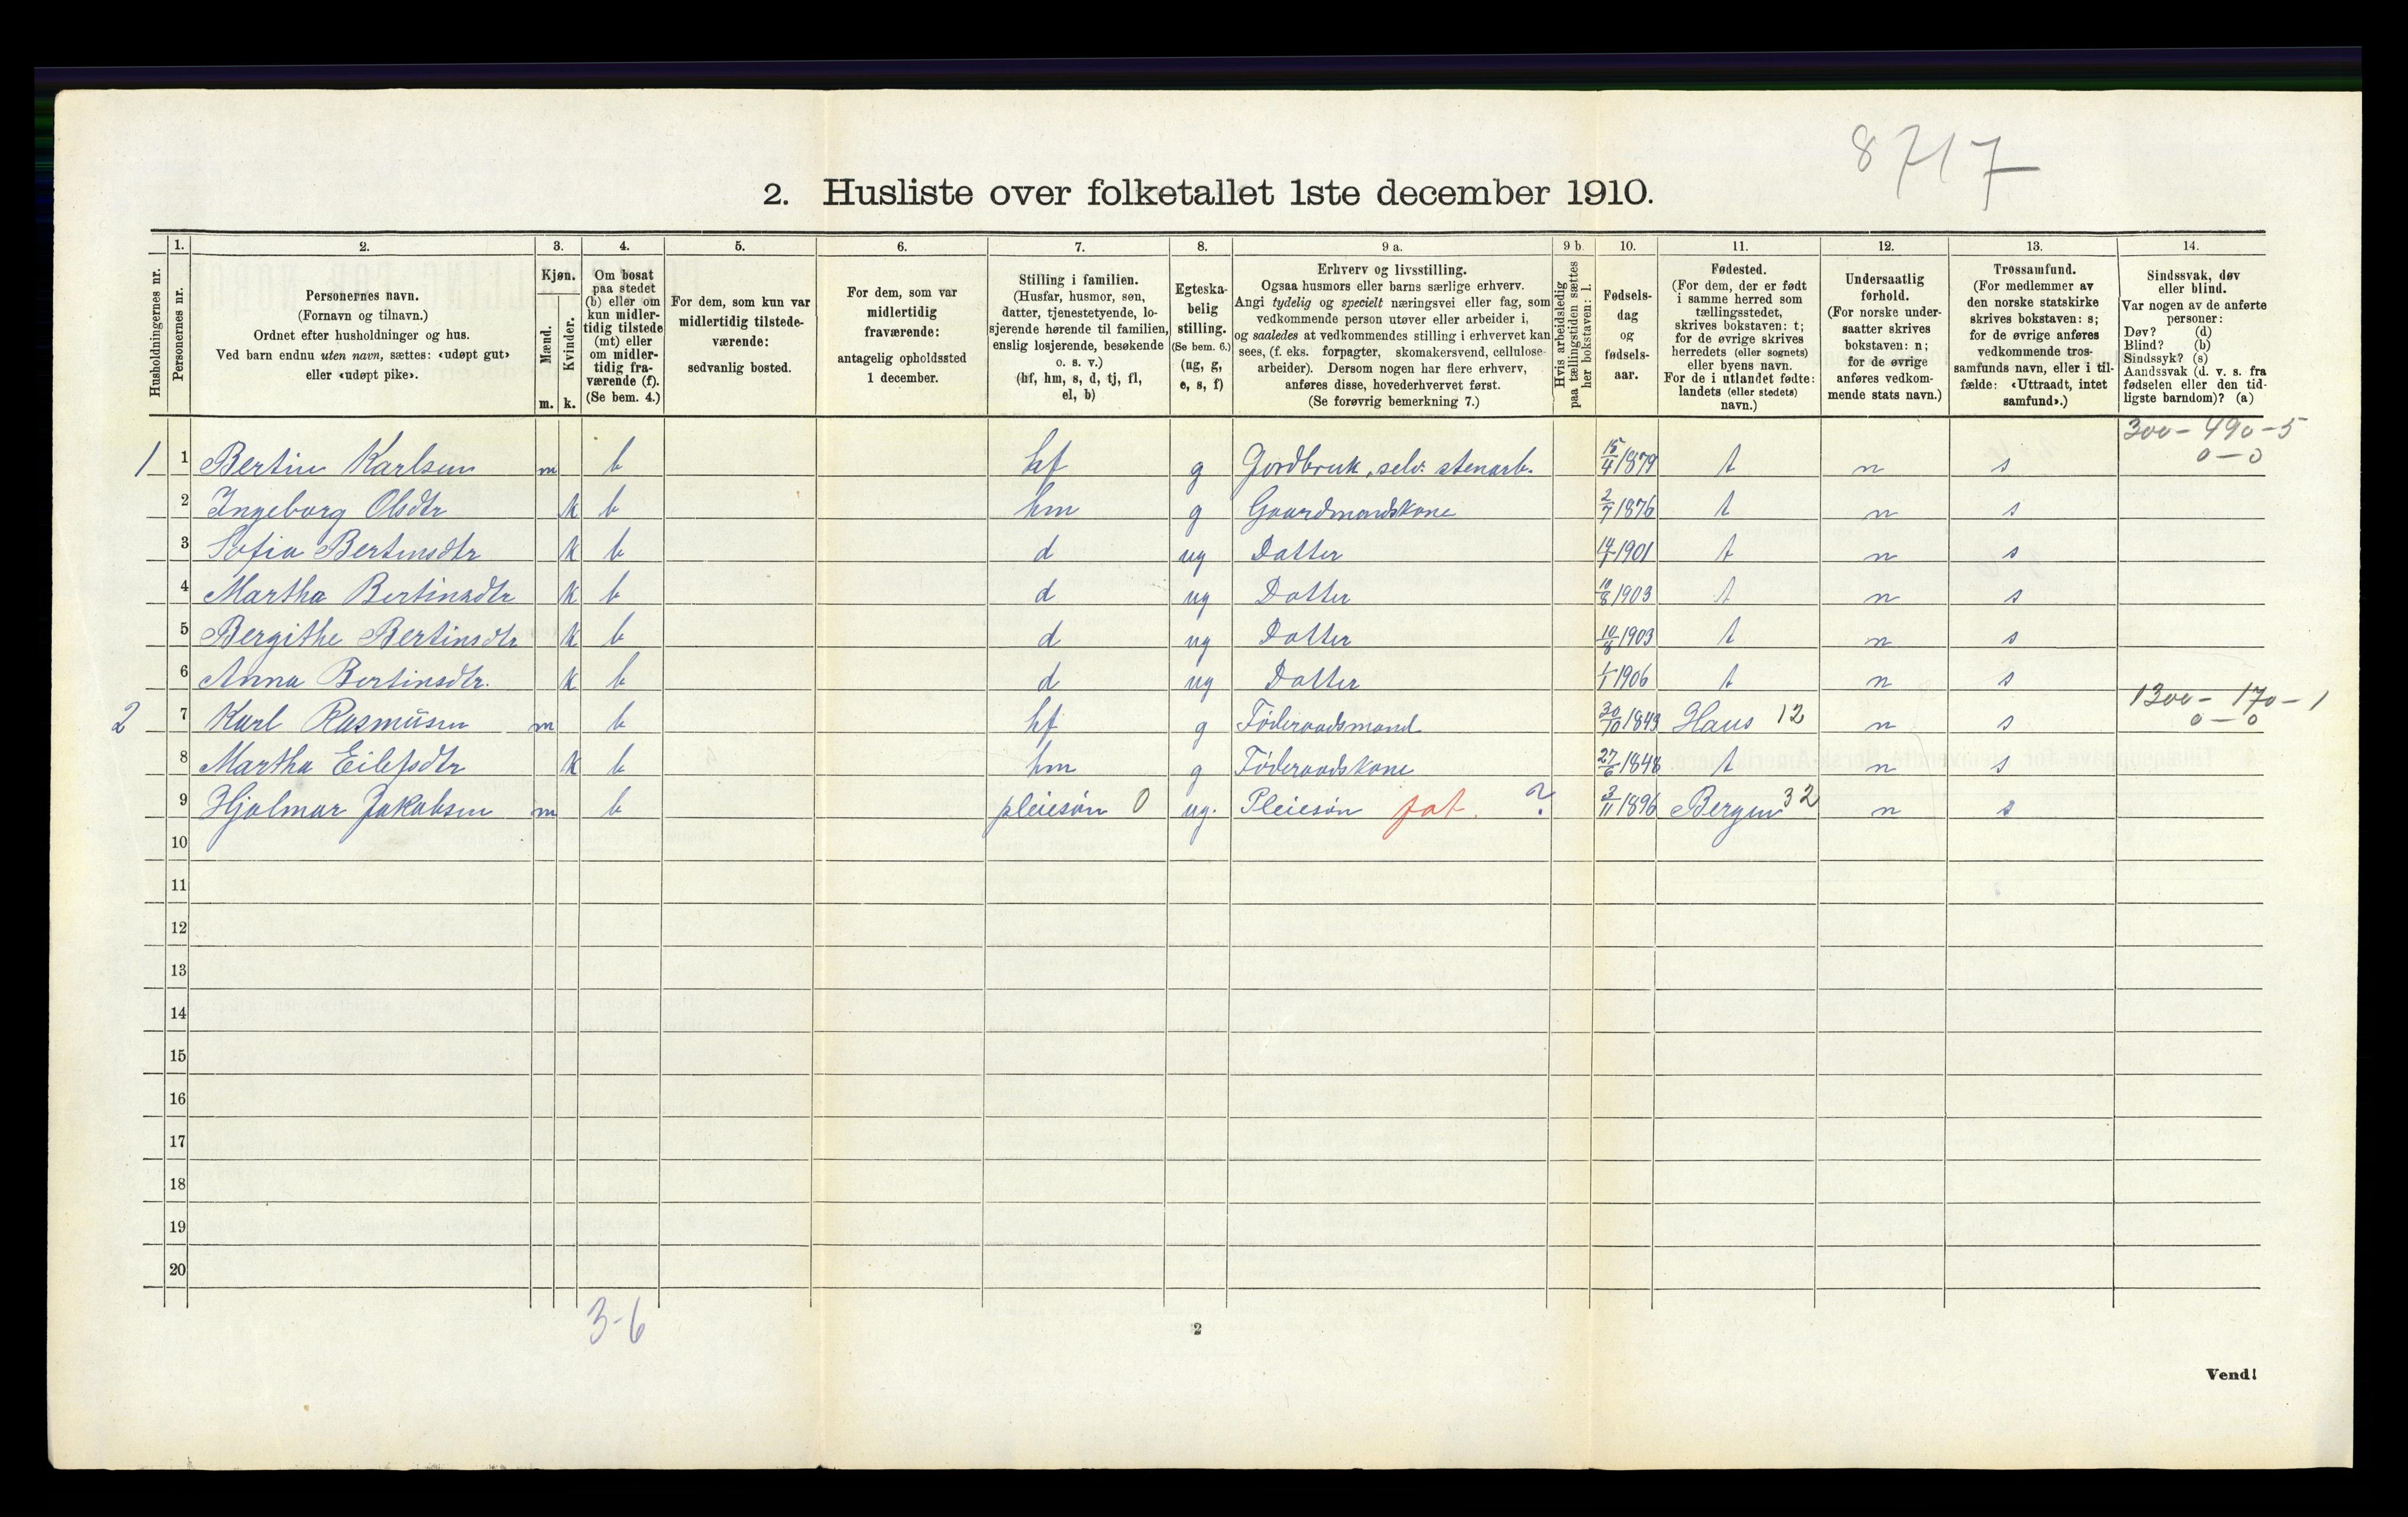 8717
2. Husliste over folketallet 1ste december 1910.
1. 2. 3. 4. 5. 6. 7. 8. 9 a. 9 b. 10. 11. 12. 13. 14.
Husholdningernes nr.
Personernes nr.
Personernes navn.
(Fornavn og tilnavn.)
Ordnet efter husholdninger og hus.
Ved barn endnu uten navn, sættes: «udøpt gut»
eller «udøpt pike».
Kjøn.
Mænd.
Kvinder.
m. k.
Om bosat
paa stedet
(b) eller om
kun midler-
tidig tilstede
(mt) eller
om midler-
tidig fra-
værende (f).
(Se bem. 4.)
For dem, som kun var
midlertidig tilstede-
værende:
sedvanlig bosted.
For dem, som var
midlertidig
fraværende:
antagelig opholdssted
1 december.
Stilling i familien.
(Husfar, husmor, søn,
datter, tjenestetyende, lo-
sjerende hørende til familien,
enslig losjerende, besøkende
o. s. v.)
(hf, hm, s, d, tj, fl,
el, b)
Egteska-
belig
stilling.
(Se bem. 6.)
(ug, g,
e, s, f)
Erhverv og livsstilling.
Ogsaa husmors eller barns særlige erhverv.
Angi tydelig og specielt næringsvei eller fag, som
vedkommende person utøver eller arbeider i,
og saaledes at vedkommendes stilling i erhvervet kan
sees, (f. eks. forpagter, skomakersvend, cellulose-
arbeider). Dersom nogen har flere erhverv,
anføres disse, hovederhvervet først.
(Se forøvrig bemerkning 7.)
Hvis arbeidsledig
paa tællingstiden sættes
her bokstaven: l.
Fødsels-
dag
og
fødsels-
aar.
Fødested.
(For dem, der er født
i samme herred som
tællingsstedet,
skrives bokstaven: t;
for de øvrige skrives
herredets (eller sognets)
eller byens navn.
For de i utlandet fødte:
landets (eller stedets)
navn.)
Undersaatlig
forhold.
(For norske under-
saatter skrives
bokstaven: n;
for de øvrige
anføres vedkom-
mende stats navn.)
Trossamfund.
(For medlemmer av
den norske statskirke
skrives bokstaven: s;
for de øvrige anføres
vedkommende tros-
samfunds navn, eller i til-
fælde: «Uttraadt, intet
samfund».)
Sindssvak, døv
eller blind.
Var nogen av de anførte
personer:
Døv? (d)
Blind? (b)
Sindssyk? (s)
Aandssvak (d. v. s. fra
fødselen eller den tid-
ligste barndom)? (a)
300 - 490 - 5
0 - 0
1 1 Bertin Karlsen m b hf g Jordbruk, selv. stenarb. 15/4 1879 t n s
2 Ingeborg Olsdtr k b hm g Gaardmandskone 2/7 1876 t n s
3 Sofia Bertinsdtr k b d ug Datter 1901 t n s
4 Martha Bertinsdtr k b d ug Datter 10/8 1903 t n s
5 Bergithe Bertinsdtr k b d ug Datter 10/8 1903 t n s
6 Anna Bertinsdtr. k b d ug Datter 1/1 1906 t n s
1300 - 170 - 1
0 - 0
2 7 Karl Rasmüsen m b hf g Føderaadsmand 30/10 1843 Haus 12 n s
8 Martha Eilefsdtr k b hm g Føderaadskone 27/6 1848 t n s
9 Hjalmar Jakobsen m b pleiesøn 0 ug. Pleiesøn fat. ? 3/11 1896 Bergen 32 n s
10
11
12
13
14
15
16
17
18
19
20
3-6
2
Vend!